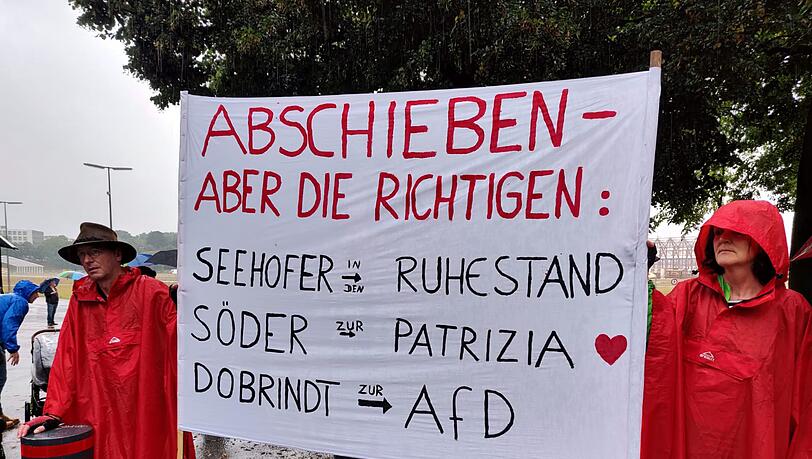 ABSCHIEBEN –
ABER DIE RICHTIGEN :
SEEHOFER IN DEN → RUHESTAND
SÖDER ZUR → PATRIZIA ♥
DOBRINDT ZUR → AfD